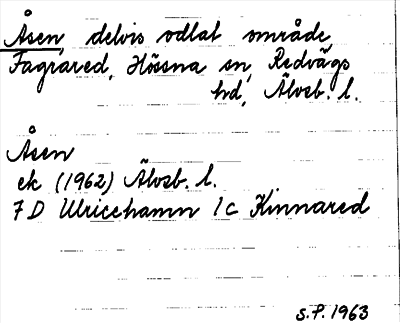 Åsen, delvis odlat område,
Fagrared, Hössna sn, Redvägs
hd, Älvsb. l.
Åsen
ek (1962) Älvsb. l.
7 D Ulricehamn 1c Kinnared
S.P. 1963